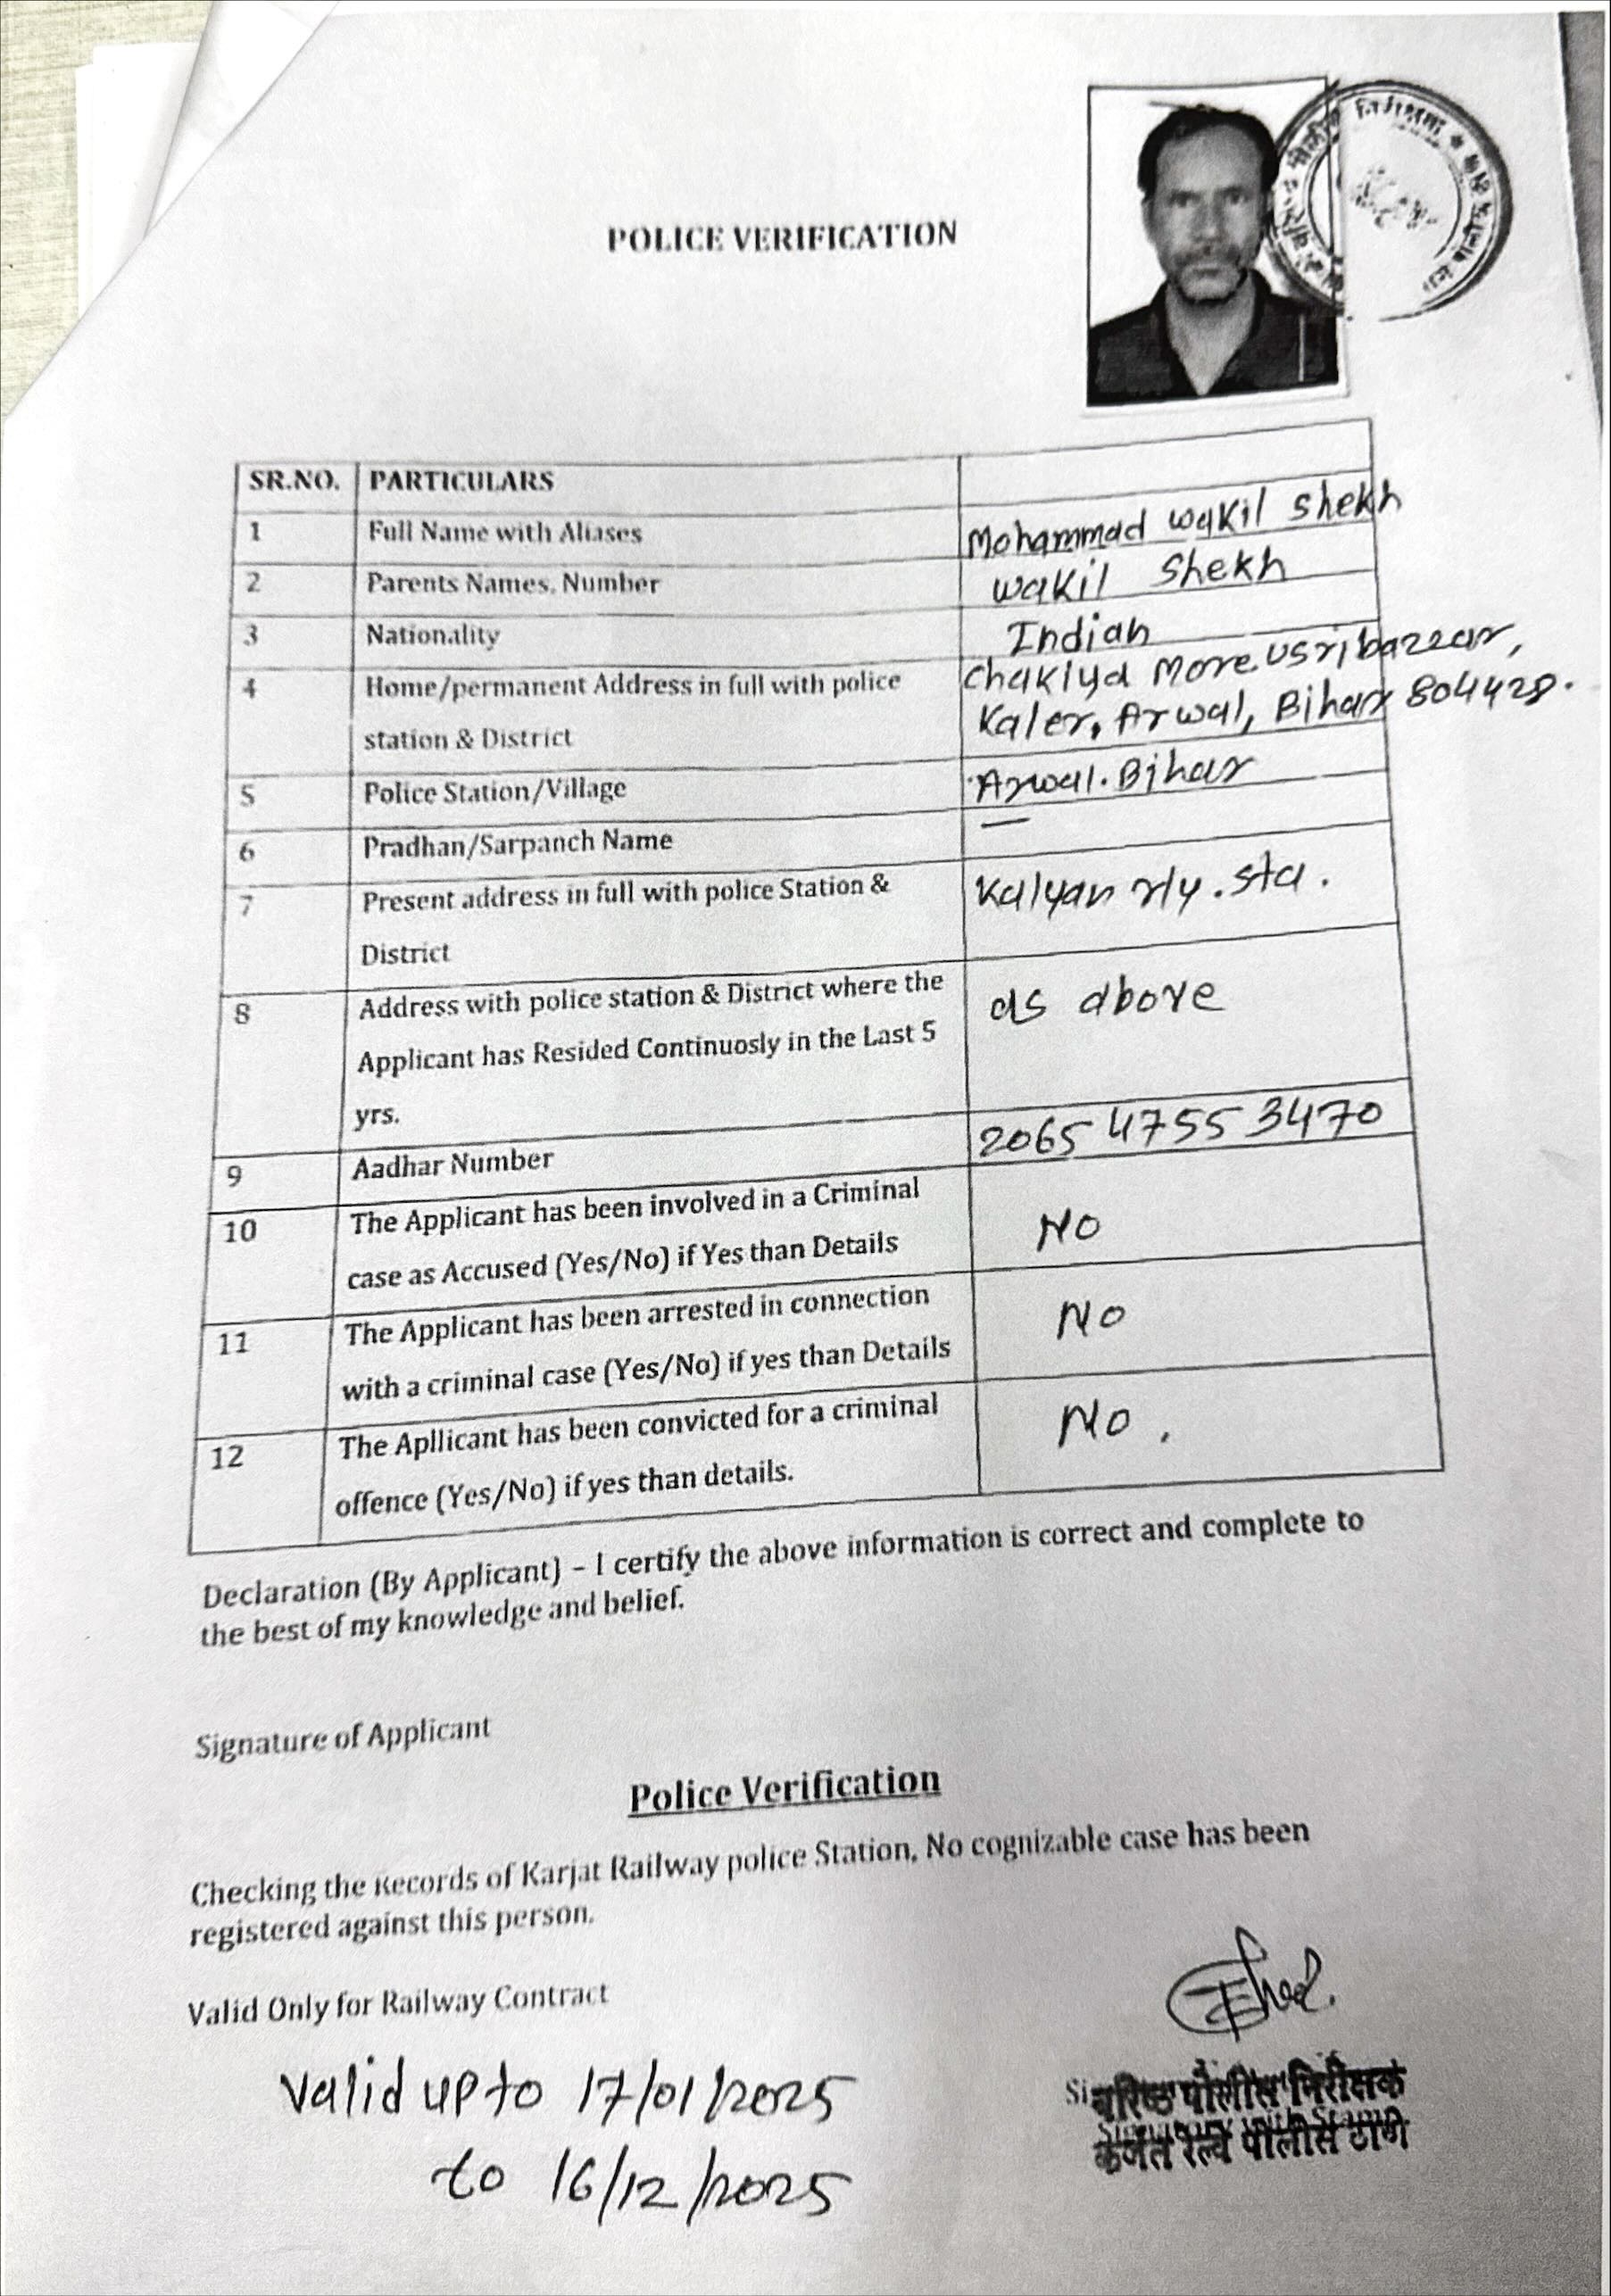 POLICE VERIFICATION
SR.NO. PARTICULARS
1 Full Name with Aliases Mohammad wakil shekh
2 Parents Names, Number wakil shekh
3 Nationality Indian
4 Home/permanent Address in full with police chaklya More usri bazzar,
station & District Kaler, Arwal, Bihar 804428.
5 Police Station/Village Arwal. Bihar
6 Pradhan/Sarpanch Name —
7 Present address in full with police Station & Kalyan rly. sta.
District
8 Address with police station & District where the as above
Applicant has Resided Continuosly in the Last 5
yrs.
9 Aadhar Number 2065 4755 3470
10 The Applicant has been involved in a Criminal NO
case as Accused (Yes/No) if Yes than Details
11 The Applicant has been arrested in connection NO
with a criminal case (Yes/No) if yes than Details
12 The Apllicant has been convicted for a criminal NO.
offence (Yes/No) if yes than details.
Declaration (By Applicant) – I certify the above information is correct and complete to
the best of my knowledge and belief.
Signature of Applicant
Police Verification
Checking the Records of Karjat Railway police Station, No cognizable case has been
registered against this person.
Valid Only for Railway Contract
valid up to 17/01/2025
to 16/12/2025
वरिष्ठ पोलीस निरीक्षक
कर्जत रेल्वे पोलीस ठाणे